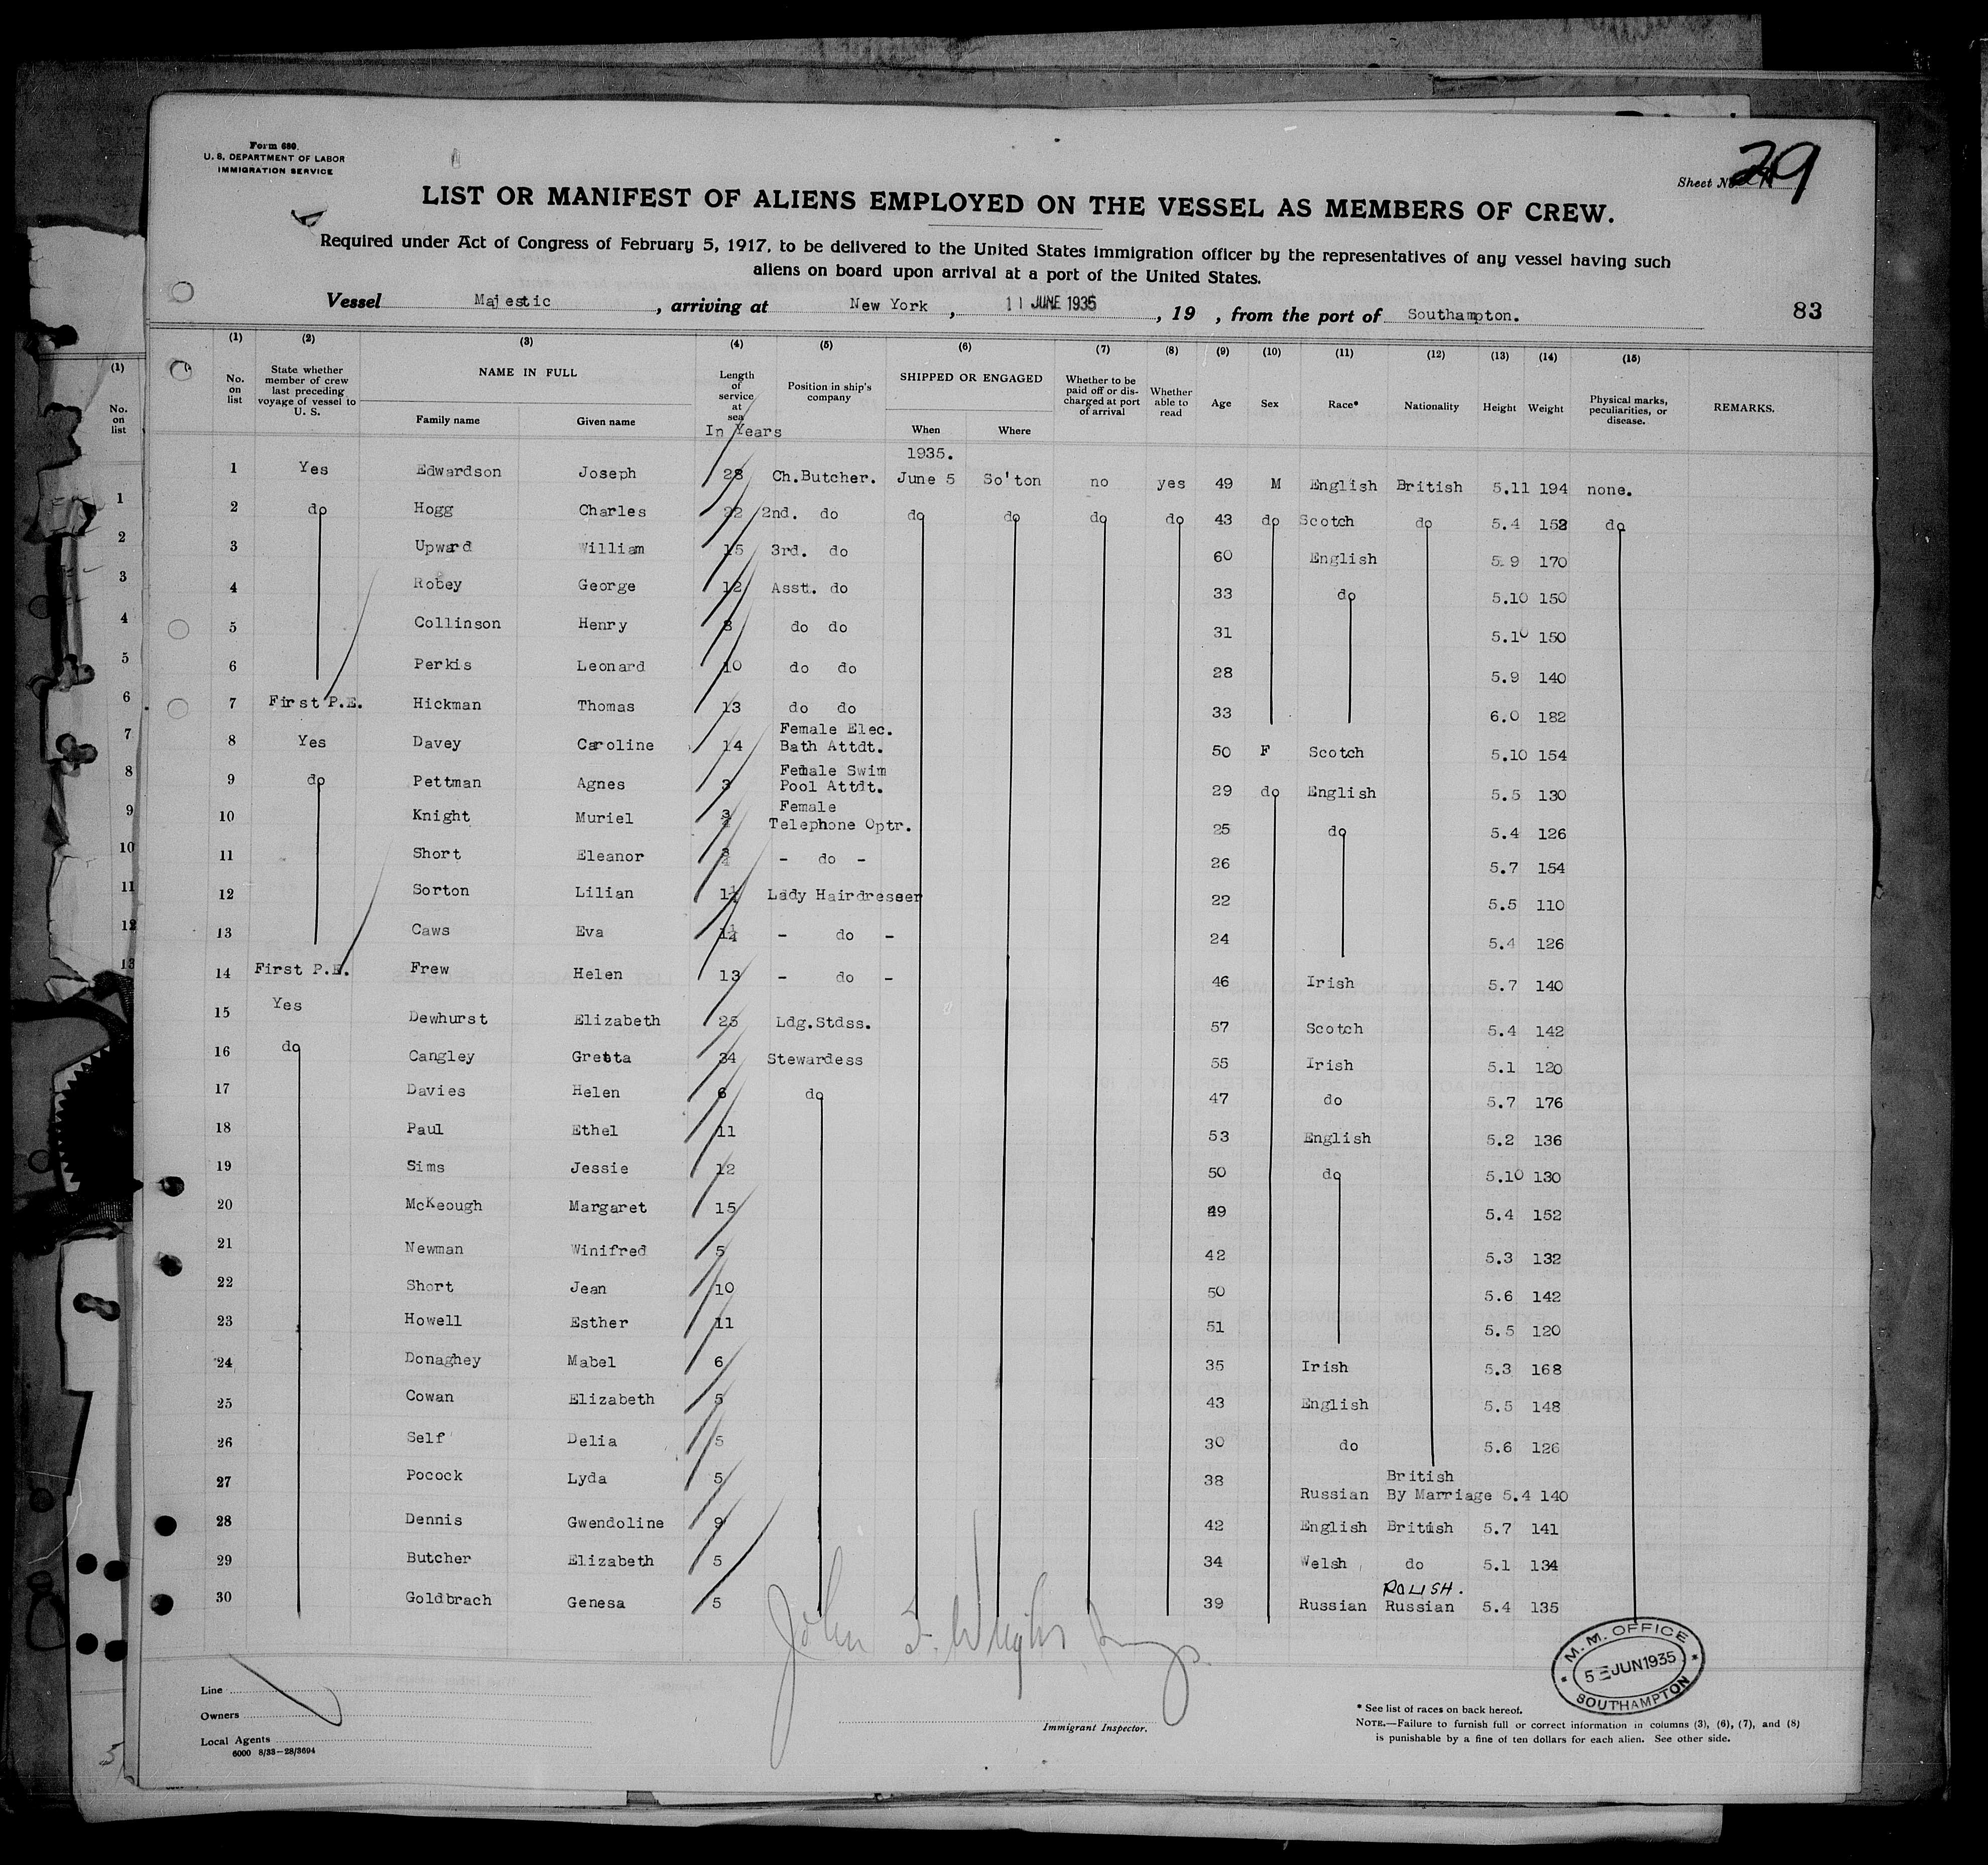 Form 680.
U. S. DEPARTMENT OF LABOR
IMMIGRATION SERVICE
Sheet No. 29
LIST OR MANIFEST OF ALIENS EMPLOYED ON THE VESSEL AS MEMBERS OF CREW.
Required under Act of Congress of February 5, 1917, to be delivered to the United States immigration officer by the representatives of any vessel having such
aliens on board upon arrival at a port of the United States.
Vessel Majestic, arriving at New York, 11 JUNE 1935, 19 , from the port of Southampton. 83
(1) (2) (3) (4) (5) (6) (7) (8) (9) (10) (11) (12) (13) (14) (15)
No. on list
State whether member of crew last preceding voyage of vessel to U. S.
NAME IN FULL
Family name Given name
Length of service at sea
In Years
Position in ship's company
SHIPPED OR ENGAGED
When Where
Whether to be paid off or discharged at port of arrival
Whether able to read
Age Sex Race* Nationality Height Weight
Physical marks, peculiarities, or disease.
REMARKS.
1935.
1 Yes Edwardson Joseph 28 Ch.Butcher. June 5 So'ton no yes 49 M English British 5.11 194 none.
2 do Hogg Charles 22 2nd. do do do do do 43 do Scotch do 5.4 152 do
3 Upward William 15 3rd. do 60 English 5.9 170
4 Robey George 12 Asst. do 33 do 5.10 150
5 Collinson Henry 8 do do 31 5.10 150
6 Perkis Leonard 10 do do 28 5.9 140
7 First P.E. Hickman Thomas 13 do do 33 6.0 182
8 Yes Davey Caroline 14 Female Elec. Bath Attdt. 50 F Scotch 5.10 154
9 do Pettman Agnes 3 Female Swim Pool Attdt. 29 do English 5.5 130
10 Knight Muriel 3/4 Female Telephone Optr. 25 do 5.4 126
11 Short Eleanor 3/4 - do - 26 5.7 154
12 Sorton Lilian 1¼ Lady Hairdresser 22 5.5 110
13 Caws Eva 1¼ - do - 24 5.4 126
14 First P.E. Frew Helen 13 - do - 46 Irish 5.7 140
15 Yes Dewhurst Elizabeth 25 Ldg.Stdss. 57 Scotch 5.4 142
16 do Cangley Gretta 34 Stewardess 55 Irish 5.1 120
17 Davies Helen 6 do 47 do 5.7 176
18 Paul Ethel 11 53 English 5.2 136
19 Sims Jessie 12 50 do 5.10 130
20 McKeough Margaret 15 49 5.4 152
21 Newman Winifred 5 42 5.3 132
22 Short Jean 10 50 5.6 142
23 Howell Esther 11 51 5.5 120
24 Donaghey Mabel 6 35 Irish 5.3 168
25 Cowan Elizabeth 5 43 English 5.5 148
26 Self Delia 5 30 do 5.6 126
27 Pocock Lyda 5 38 Russian British By Marriage 5.4 140
28 Dennis Gwendoline 9 42 English British 5.7 141
29 Butcher Elizabeth 5 34 Welsh do 5.1 134
POLISH.
30 Goldbrach Genesa 5 39 Russian Russian 5.4 135
John F. Wright
M. M. OFFICE
5 JUN 1935
SOUTHAMPTON
Line
Owners
Local Agents
6000 8/33—28/3694
Immigrant Inspector.
* See list of races on back hereof.
NOTE.—Failure to furnish full or correct information in columns (3), (6), (7), and (8)
is punishable by a fine of ten dollars for each alien. See other side.
(1)
No. on list
1
2
3
4
5
6
7
8
9
10
11
12
13